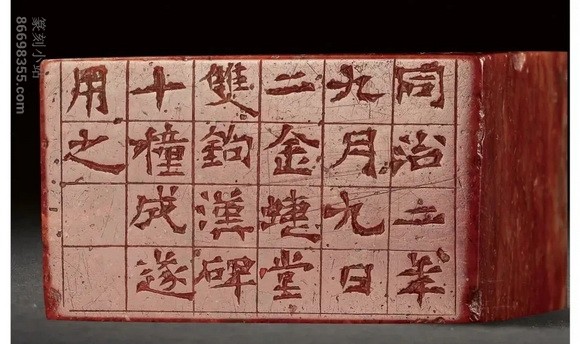 同治二年
九月九日
二金蜨堂
雙鉤漢碑
十穜成遂
用之
篆刻小站
86698355.com